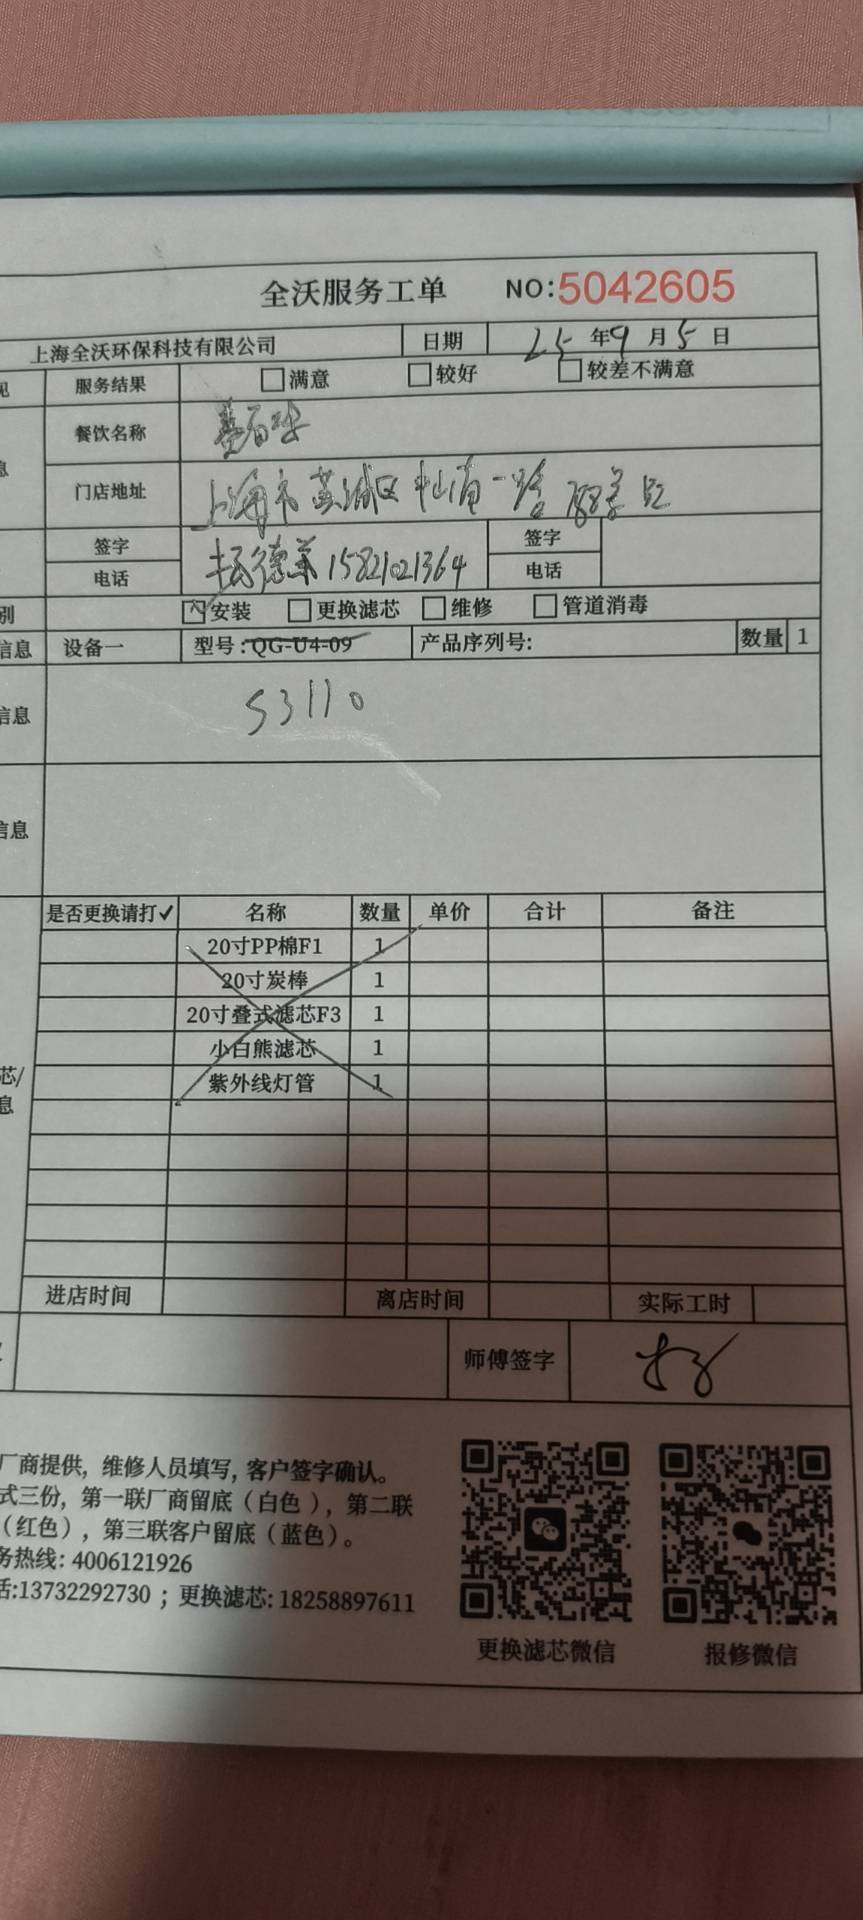 全沃服务工单 NO:5042605
上海全沃环保科技有限公司 日期 25年9月5日
见 服务结果 满意 较好 较差不满意
息 餐饮名称
门店地址 上海市黄浦区中山南一路
签字 签字
电话 15821021364 电话
别 安装 更换滤芯 维修 管道消毒
信息 设备一 型号:QG-U4-09 产品序列号: 数量 1
信息 S3110
信息
是否更换请打✓ 名称 数量 单价 合计 备注
20寸PP棉F1 1
20寸炭棒 1
20寸叠式滤芯F3 1
芯/ 小白熊滤芯 1
息 紫外线灯管 1
进店时间 离店时间 实际工时
师傅签字
厂商提供, 维修人员填写, 客户签字确认。
式三份, 第一联厂商留底（白色）, 第二联
（红色）, 第三联客户留底（蓝色）。
务热线: 4006121926
话:13732292730 ; 更换滤芯: 18258897611
更换滤芯微信 报修微信